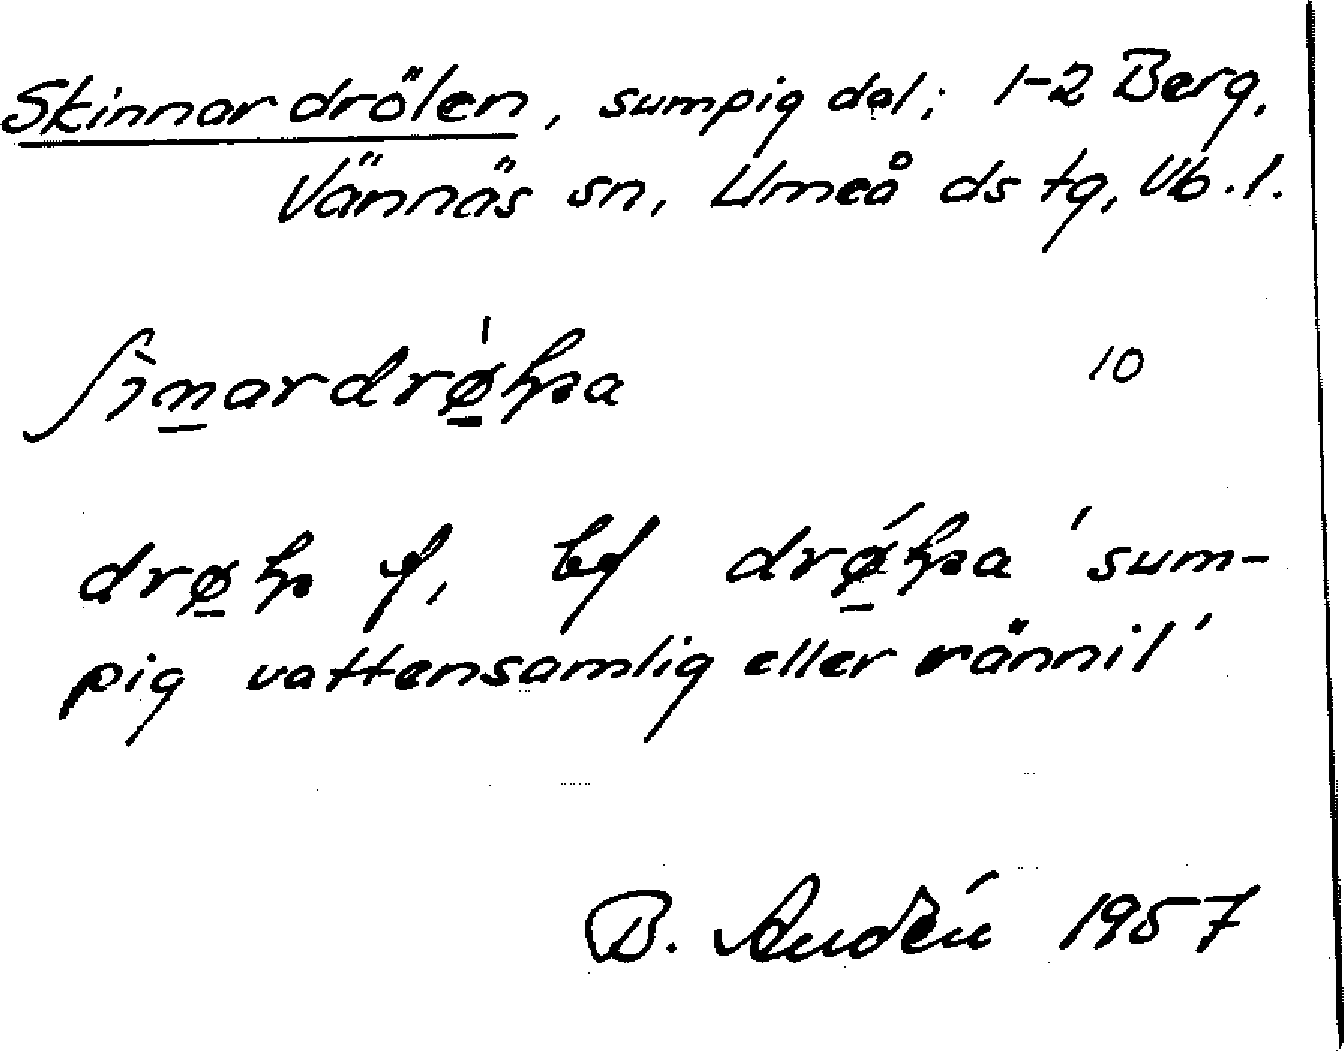 Skinnardrölen, sumpig dal; 1-2 Berg,
Vännäs sn, Umeå ds tg, Vb. l.
10
f, bf 'sum-
pig vattensamlig eller rännil'
B. Audén 1957